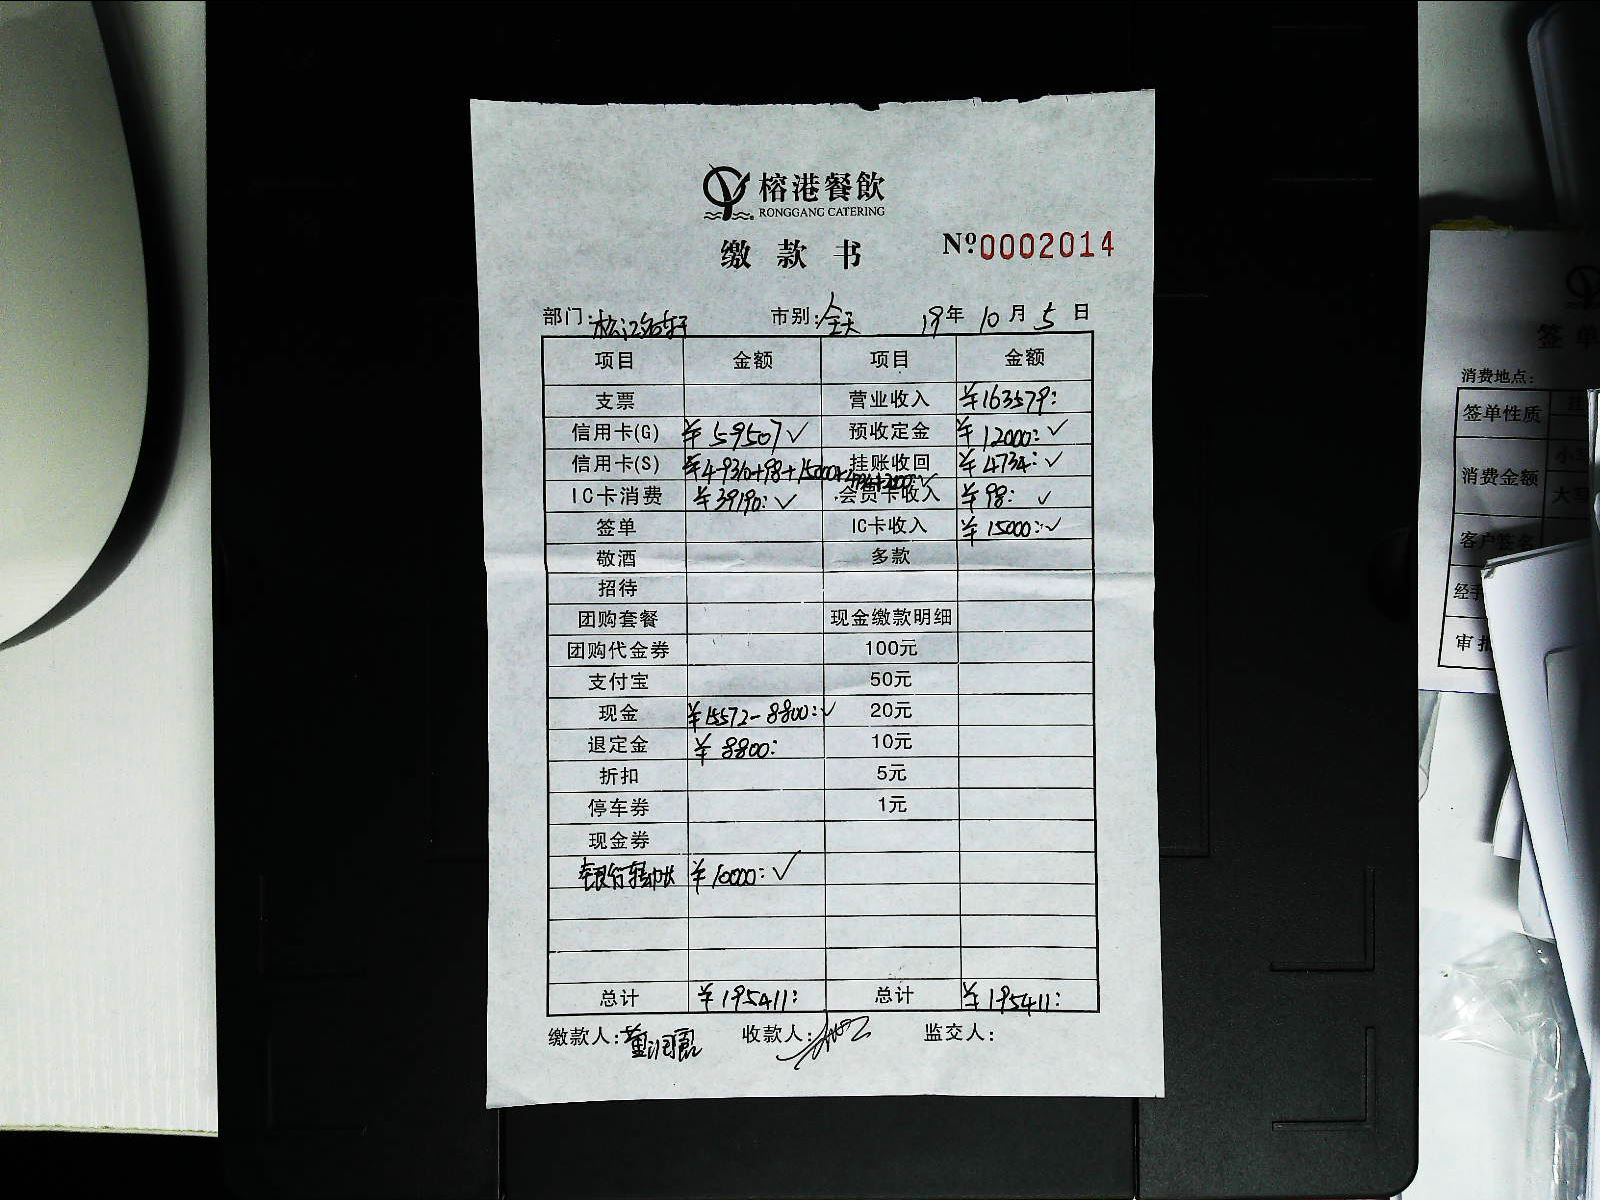 榕港餐飲
RONGGANG CATERING
缴款书 Nº0002014
部门: 松江名轩 市别: 全天 19年10月5日
项目 金额 项目 金额
支票 营业收入 ¥163579:
信用卡(G) ¥59507✓ 预收定金 ¥12000:✓
信用卡(S) ¥49310+98+15000+4734+2000:✓ 挂账收回 ¥4734:✓
IC卡消费 ¥39190:✓ 会员卡收入 ¥98:✓
签单 IC卡收入 ¥15000:✓
敬酒 多款
招待
团购套餐 现金缴款明细
团购代金券 100元
支付宝 50元
现金 ¥15572-8800:✓ 20元
退定金 ¥8800: 10元
折扣 5元
停车券 1元
现金券
银行转帐 ¥10000:✓
总计 ¥195411: 总计 ¥195411:
缴款人: 收款人: 监交人:
签单
消费地点:
签单性质
消费金额
小写
大写
客户签名
经手
审批